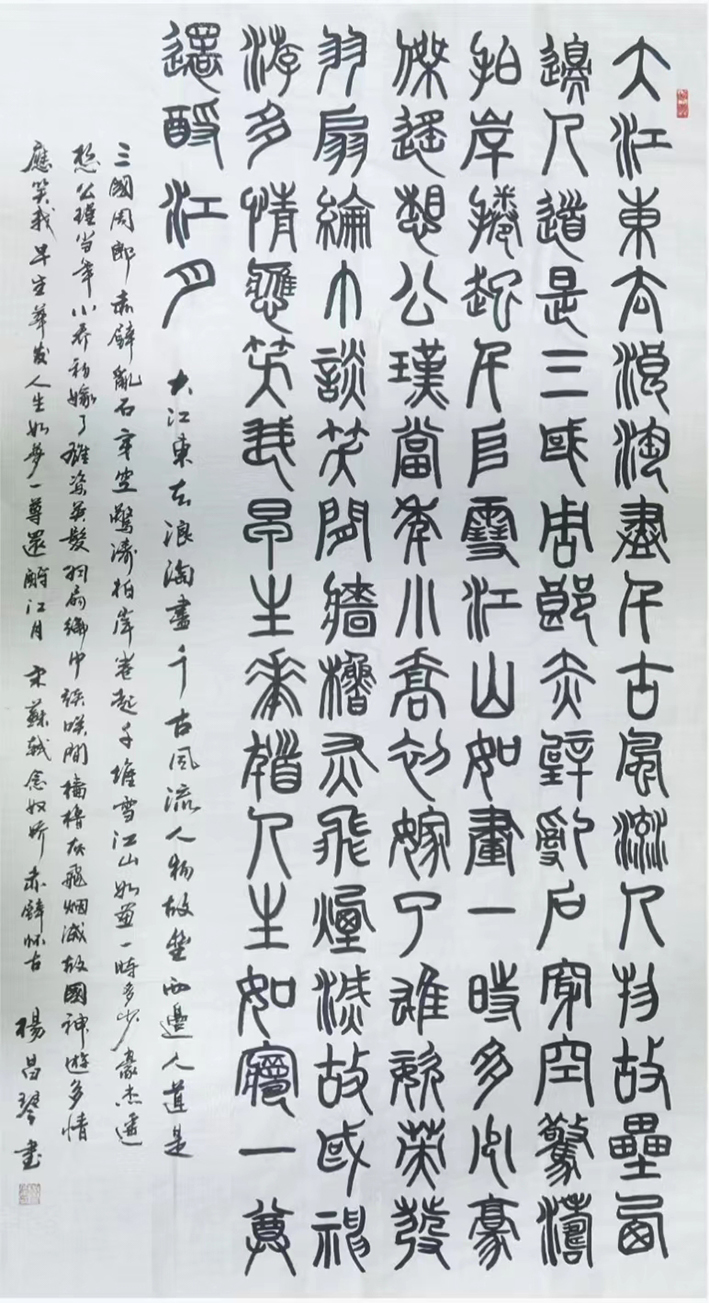 大江東去浪淘盡千古風流人物故壘西
邊人道是三國周郎赤壁亂石穿空驚濤
拍岸捲起千堆雪江山如畫一時多少豪
傑遙想公瑾當年小喬初嫁了雄姿英發
羽扇綸巾談笑間檣櫓灰飛煙滅故國神
游多情應笑我早生華髮人生如夢一尊
還酹江月
大江東去浪淘盡千古風流人物故壘西邊人道是
三國周郎赤壁亂石穿空驚濤拍岸卷起千堆雪江山如畫一時多少豪杰遙
想公瑾當年小喬初嫁了雄姿英發羽扇綸巾談笑間檣櫓灰飛烟滅故國神遊多情
應笑我早生華发人生如夢一尊還酹江月 宋蘇軾念奴嬌赤壁怀古 楊昌琴書